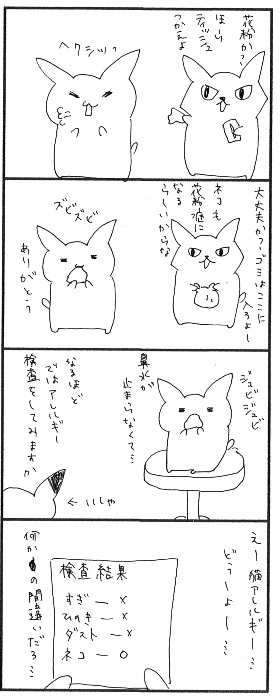 花粉か？
ほら
ティッシュ
つかえよ
ヘクシッっ
大丈夫か？ゴミはここに
入るよー
ネコも
花粉症に
なる
らしいからな
ズビズビ
ありがとう
ジュビジュビ
鼻水が
止まらなくて…
なるほど
ではアレルギー
検査をしてみますか
←いしゃ
えー猫アレルギー…
どうしよー…
検査結果
すぎ — ×
ひのき — ×
ダスト — ×
ネコ — ○
何かの間違いだろ…